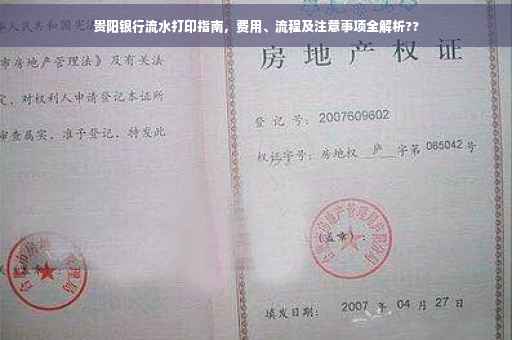 贵阳银行流水打印指南，费用、流程及注意事项全解析??
人民共和国宪
市房地产管理法》及有关法
定，对权利人申请登记本证所
审查属实，准予登记，特发此
房地产权证
登记号：2007609602
权证字号：房地权 庐 字第 085042 号
(盖章)：
填发日期： 2007 年 04 月 27 日